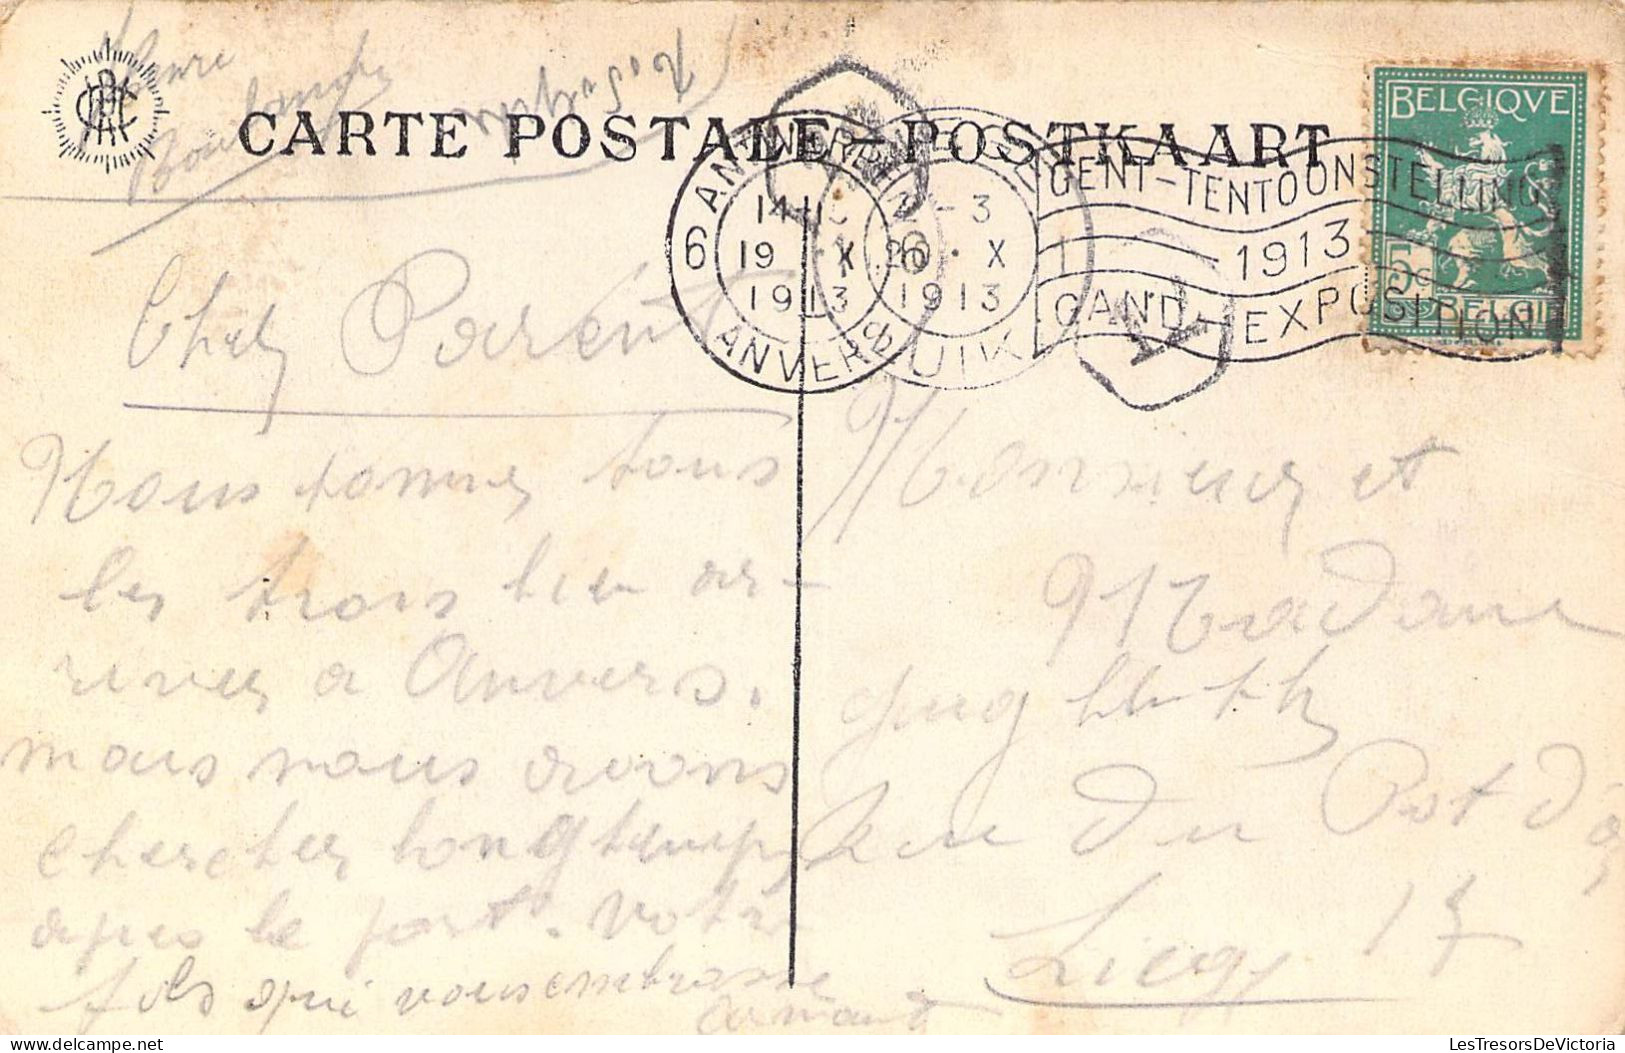 CARTE POSTALE - POSTKAART
BELGIQVE
5c
BELGIË
ANTWERPEN
6 6
14-15
19 X
1913
ANVERS
LIEGE
-3
20 X
1913
LUIK
1
GENT-TENTOONSTELLING
1913
GAND-EXPOSITION
A
Cher Parent
Nous sommes tous
les trois bien ar-
river a Anvers.
mais nous avons
chercher longtemps
apres le port. Votre
fils qui vous embrasse
Armand
Monsieur et
Madame
Rue du Pot d'or
17
Liege
LesTresorsDeVictoria.com